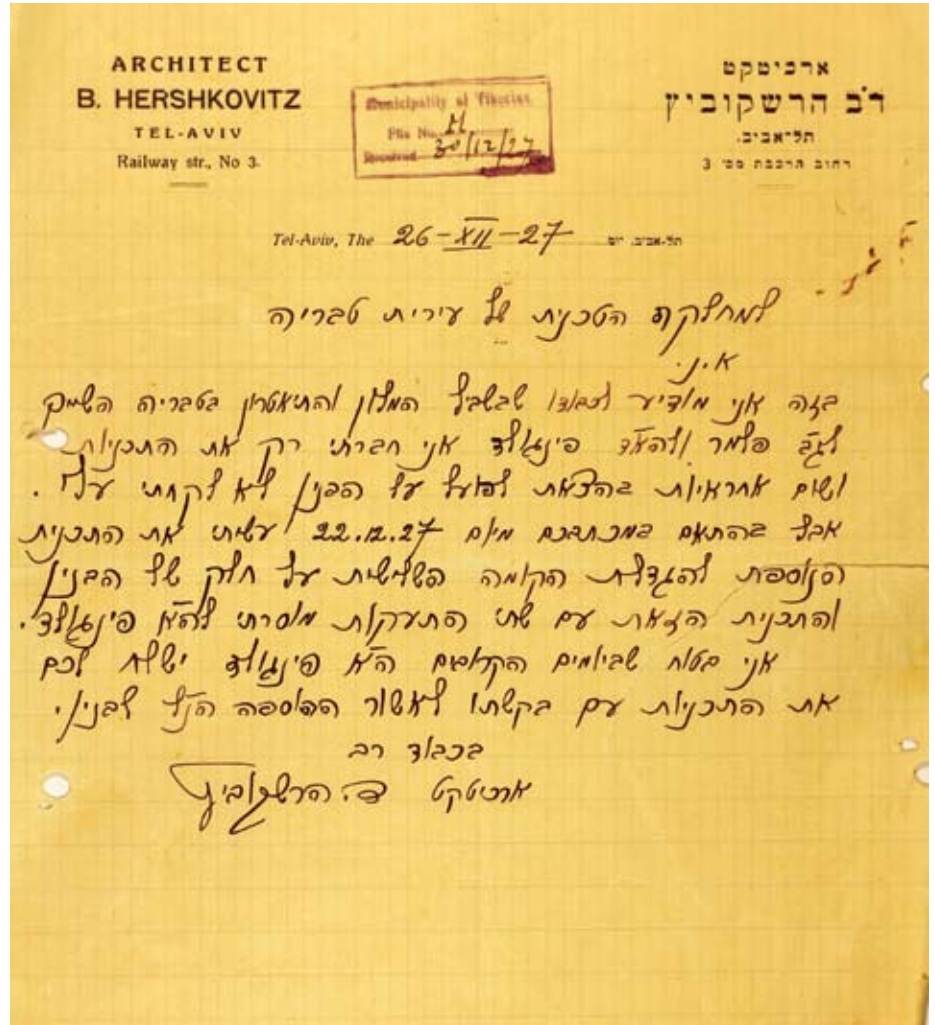 ARCHITECT
B. HERSHKOVITZ
TEL-AVIV
Railway str., No 3.
ארכיטקט
ד"ב הרשקוביץ
תל־אביב.
רחוב הרכבת מס' 3
Municipality of Tiberias
File No. M
Received 30/12/27
Tel-Aviv, The 26-XII-27 תל-אביב, יום
למחלקה הטכנית של עירית טבריה
א.נ.
בזה אני מודיע לכבודו שבשביל המלון והתיאטרון בטבריה השייך
לגב' פלמר ולהאד' פינגולד אני חברתי רק את התכניות
ושום אחראיות בהוצאת לפועל על הבנין לא לקחתי עלי.
אבל בהתאם במכתבכם מיום 22.12.27 עשיתי את התכנית
הנוספת להגדלת הקומה השלישית על חלק של הבנין
והתכנית הזאת עם שתי התעתקות מוסרתי לה"א פינגולד.
אני בטוח שביומים הקרובים ה"א פינגולד ישלח לכם
את התכניות עם בקשתו לאשור ההוספה הנ"ל לבנינו.
בכבוד רב
ארכיטקט ד.ב. הרשקוביץ